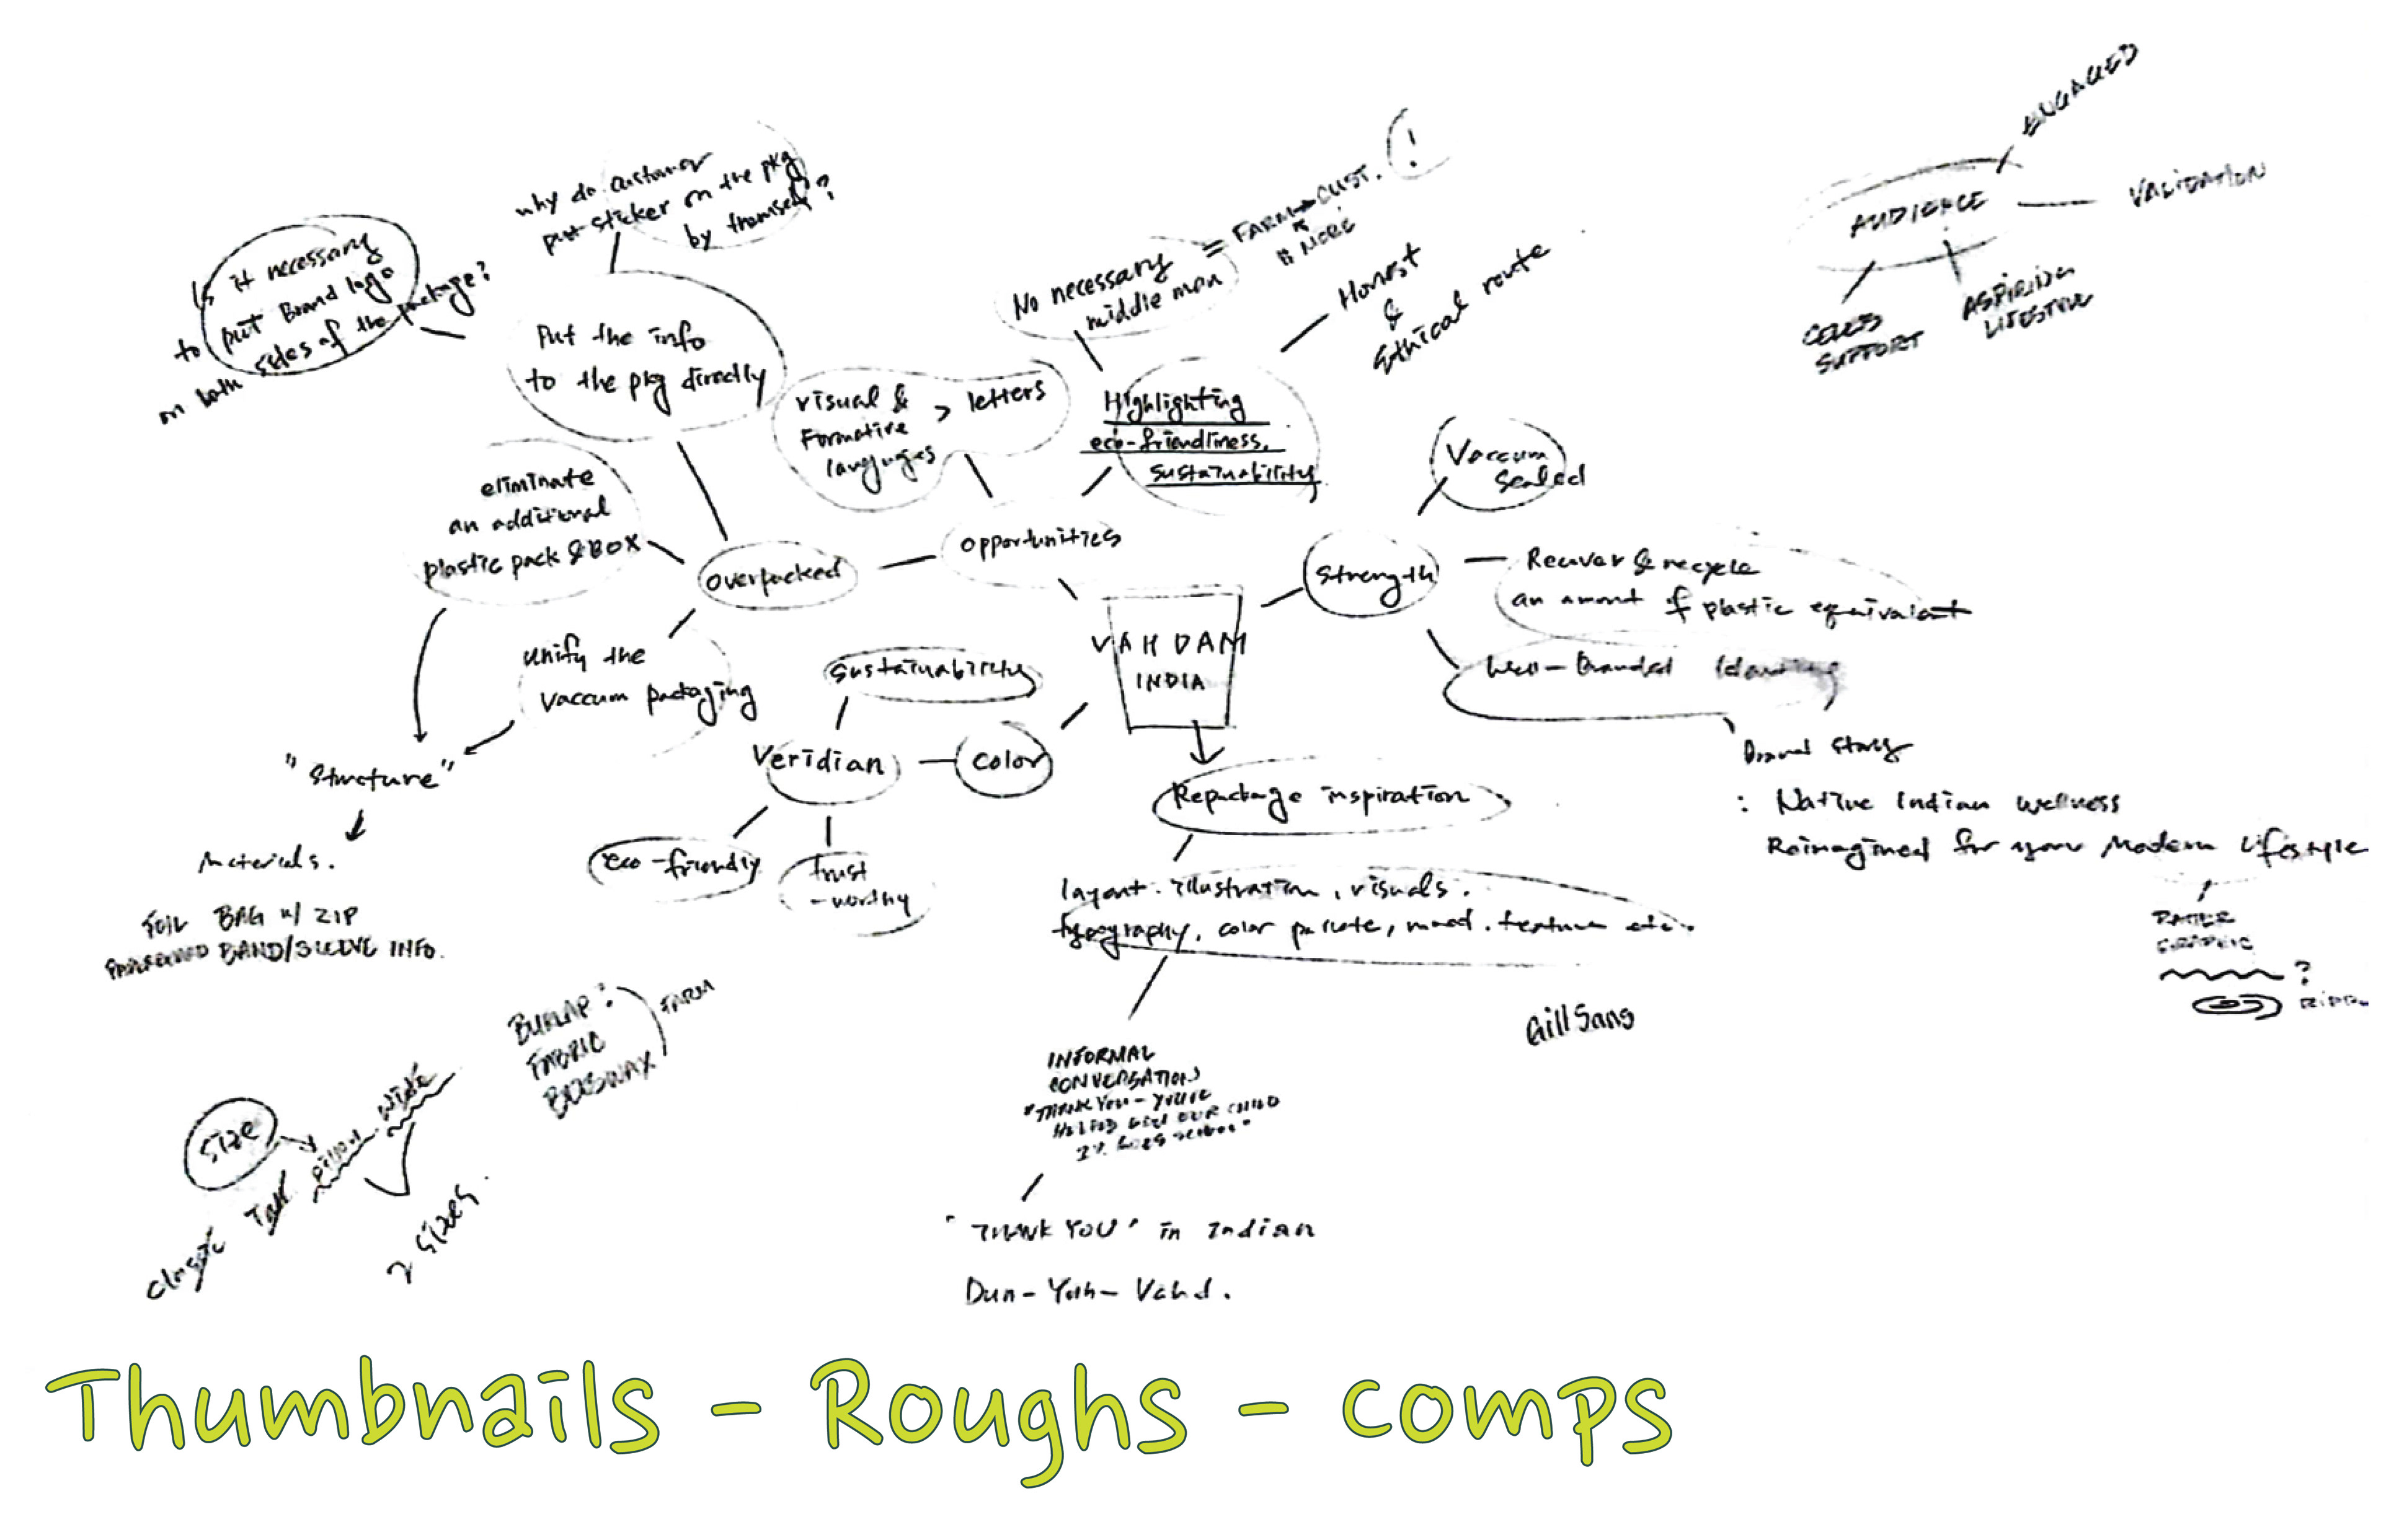 why do customer
put sticker on the pkg
by themself?
Is it necessary
to put Brand logo
on both sides of the package?
Put the info
to the pkg directly
No necessary
middle man
= FARM → CUST.
MORE
!
Honest
&
Ethical route
ENGAGED
AUDIENCE
VALIDATION
CELEB
SUPPORT
ASPIRING
LIFESTYLE
visual &
Formative
languages
> letters
Highlighting
eco-friendliness,
sustainability
Vaccum
Sealed
eliminate
an additional
plastic pack & BOX
overpacked
opportunities
Strength
Recover & recycle
an amount of plastic equivalent
Unify the
Vaccum packaging
Sustainability
VAHDAM
INDIA
Well-Branded Identity
"Structure"
Veridian
Color
Brand Story
: Native Indian wellness
Reimagined for your Modern Lifestyle
Repackage inspiration
eco-friendly
trust
-worthy
Materials.
FOIL BAG w/ ZIP
BAND/SLEEVE INFO.
layout. illustration, visuals.
typography, color pallete, mood. feature etc..
GRAPHIC
?
BURLAP?
FABRIC
BEESWAX
FARM
Gill Sans
INFORMAL
CONVERSATION
"THANK YOU - YOU'VE
HELPED OUR CHILD
Size
Classic Tall pillow wide
2 Sizes.
"THANK YOU" in Indian
Dun-Yah-Vahd.
Thumbnails - Roughs - comps